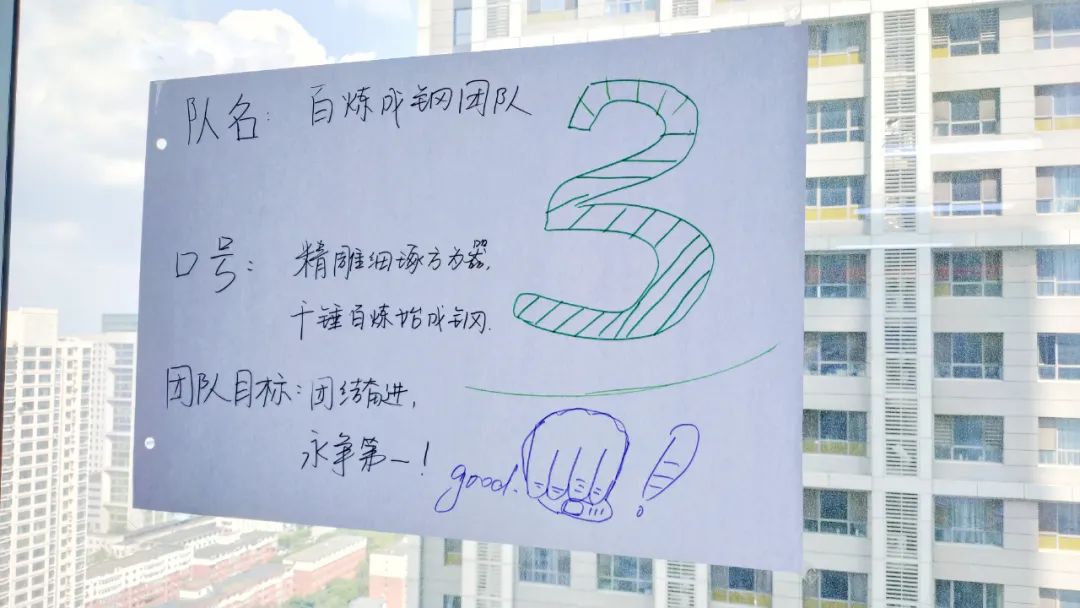 队名：百炼成钢团队
3
口号：精雕细琢方为器，
千锤百炼始成钢.
团队目标：团结奋进，
永争第一！
good. !